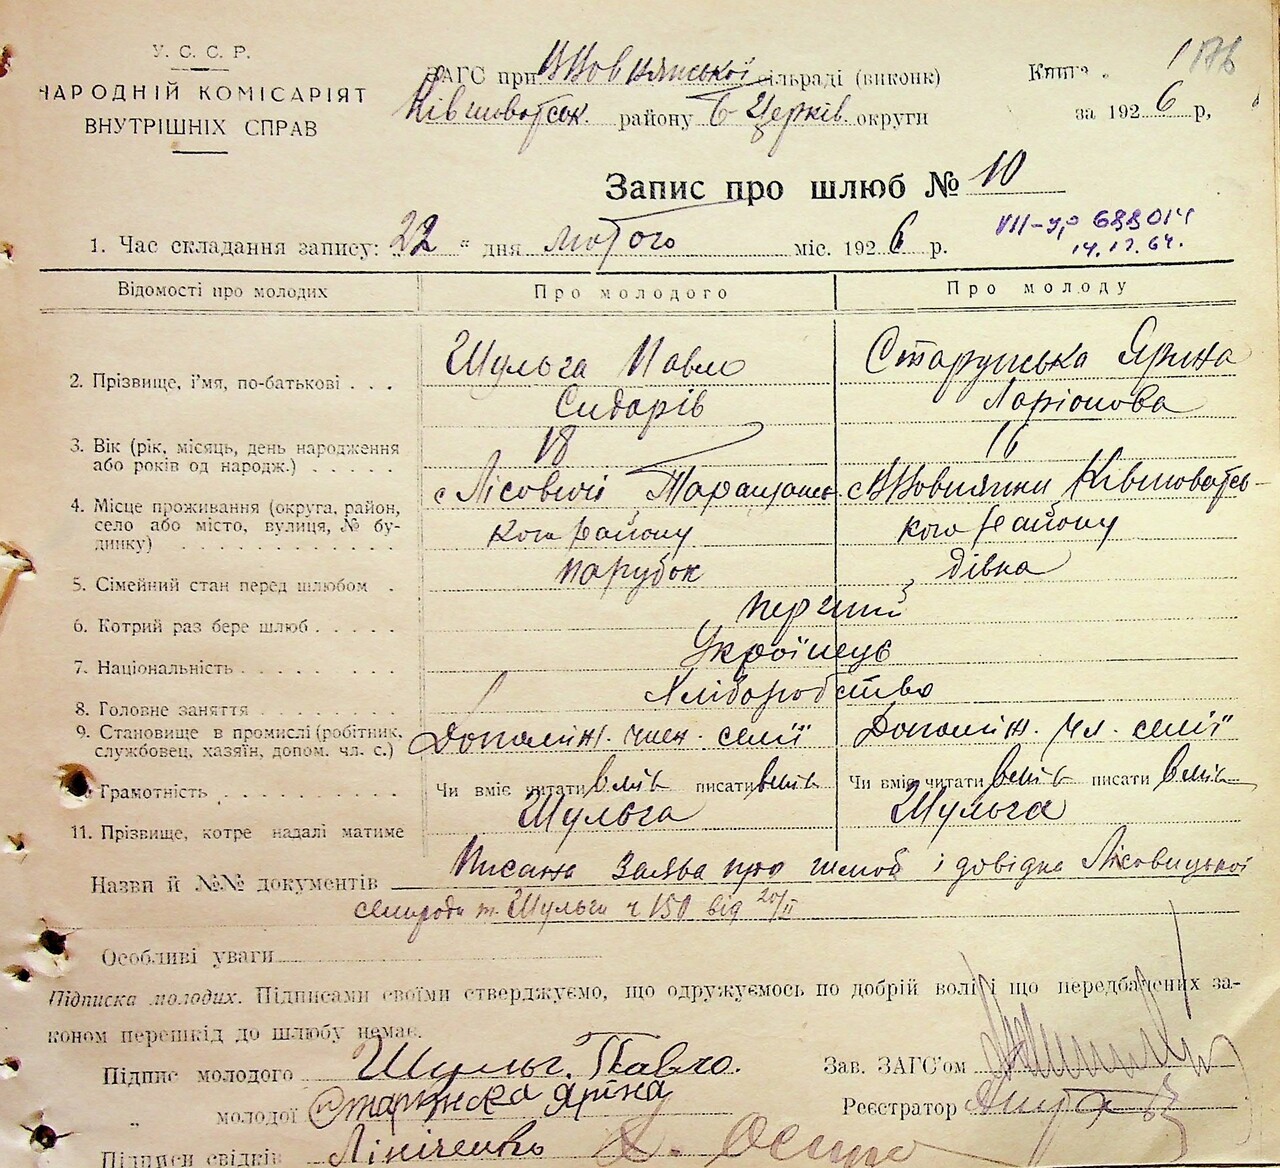 У. С. С. Р.
НАРОДНІЙ КОМІСАРІЯТ
ВНУТРІШНІХ СПРАВ
ЗАГС при сільраді (виконк)
Ківшоватськ. району Б-Церків. округи
Книга 1 176
за 1926 р,
Запис про шлюб № 10
VII-ур 688014
1. Час складання запису: 22 " дня лютого міс. 1926 р.
Відомості про молодих Про молодого Про молоду
2. Прізвище, і'мя, по-батькові . . . Шульга Павло Сидорів Ярина Ларіонова
3. Вік (рік, місяць, день народження або років од народж.) . . . . . 18 16
4. Місце проживання (округа, район, село або місто, вулиця, № будинку) . . . . . . . . . . . с Лісовичі Таращанського району с Ківшоватського району
5. Сімейний стан перед шлюбом . парубок дівка
6. Котрий раз бере шлюб . . . . . перший
7. Національність . . . . . . . . Українець
8. Головне заняття . . . . . . . . Хліборобство
9. Становище в промислі (робітник, службовец, хазяїн, допом. чл. с.) Дополіж. член. семїї Дополіж. чл. семїї
Грамотність . . . . . . . . . Чи вміє читати вмів писати вмів Чи вміє читати вмів писати вмів
11. Прізвище, котре надалі матиме Шульга Шульга
Назви й №№ документів Писана заява про шлюб і довідка Лісовицької
сельради т. Шульги ч 150 від 20/II
Особливі уваги
Підписка молодих. Підписами своїми стверджуємо, що одружуємось по добрій волі і що передбачених за-
коном перешкід до шлюбу немає.
Підпис молодого Шульг. Павло. Зав. ЗАГС'ом
" молодої Яріна Реєстратор
Підписи свідків Лініченко